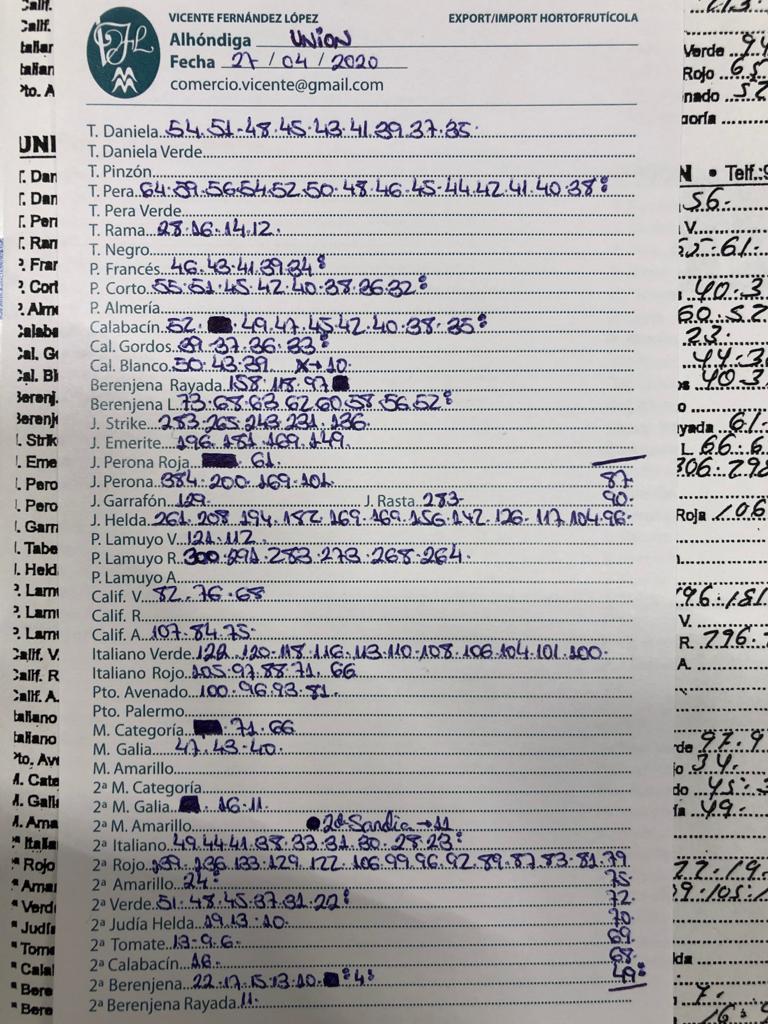 VICENTE FERNÁNDEZ LÓPEZ EXPORT/IMPORT HORTOFRUTÍCOLA
Alhóndiga UNION
Fecha 27 / 04 / 2020
comercio.vicente@gmail.com
T. Daniela 54.51-48.45.43.41.39.37.35.
T. Daniela Verde
T. Pinzón
T. Pera 64.59.56.54.52.50.48.46.45.44.42.41.40.38
T. Pera Verde
T. Rama 28.16.14.12.
T. Negro
P. Francés 46.43.41.39.34
P. Corto 55.51.45.42.40.38.36.32
P. Almería
Calabacín 52. 49.47.45.42.40.38.35
Cal. Gordos 39.37.36.33
Cal. Blanco 50.43.39 X→10.
Berenjena Rayada 158.118.97
Berenjena L 73.68.63.62.60.58.56.52
J. Strike 283.265.243.231.136.
J. Emerite 196.181.169.149.
J. Perona Roja 61.
J. Perona 384.200.169.101. 87.
J. Garrafón 129. J. Rasta 283. 90.
J. Helda 261.208.194.182.169.169.156.142.126.117.104.96.
P. Lamuyo V. 121.112.
P. Lamuyo R. 300.291.283.273.268.264.
P. Lamuyo A
Calif. V. 82.76.68
Calif. R
Calif. A. 107.84.75.
Italiano Verde 122.120.118.116.113.110.108.106.104.101.100.
Italiano Rojo 105.97.88.71.66
Pto. Avenado 100.96.93.81.
Pto. Palermo
M. Categoría 71.66
M. Galia 47.43.40.
M. Amarillo
2ª M. Categoría
2ª M. Galia 16.11.
2ª M. Amarillo 2ª Sandía → 11
2ª Italiano 49.44.41.38.33.31.30.28.23
2ª Rojo 139.136.133.129.122.106.99.96.92.89.87.83.81.79
2ª Amarillo 24 75
2ª Verde 51.48.45.37.31.22 72
2ª Judía Helda 19.13.10. 70
2ª Tomate 13.9.6. 69
2ª Calabacín 16. 68
2ª Berenjena 22.17.15.13.10. 4 49
2ª Berenjena Rayada 11.